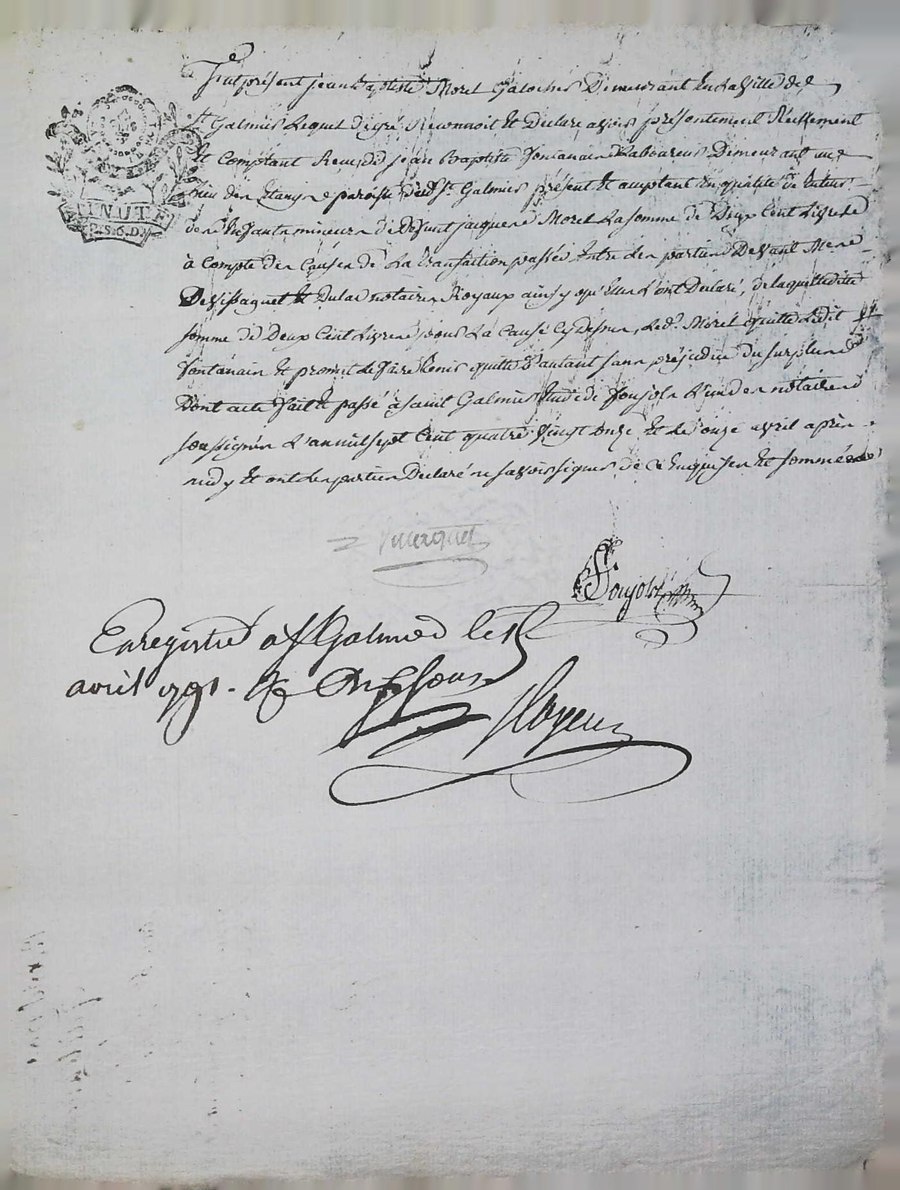 Fut présent jean Baptiste Moret Galochier Demeurant En La Ville de
St Galmier Lequel de gré Reconnoit Et Declare avoir présentement Réellement
Et Comptant Recu de jean Baptiste fontanain Laboureur Demeurant au
lieu des Etangs paroisse dud. St. Galmier présent Et acceptant En qualité de tuteur
des Enfants mineurs de Defunt jacques Moret La somme de Deux Cent Livres
à Compte des Causes de La transaction passée Entre les parties Devant Me
Devissaguet Et notaires Royaux ainsy qu'elles L'ont Declaré, de laquelle dite
somme de Deux Cent Livres, sous La Cause Cy dessus, Led. Moret quitte Ledit
fontanain Et promet de faire tenir quitte D'autant sans préjudice du surplus
Dont acte fait Et passé à saint Galmier Etude de foujols L'un des notaires
soussignés L'an mil sept Cent quatre Vingt onze Et le onze avril après
midy Et ont les parties Declaré ne savoir signer de ce Enquises Et sommées
MINUTE
2. S. 6. D.
foujols
Enregistré a St Galmier le 15
avril 1791. R